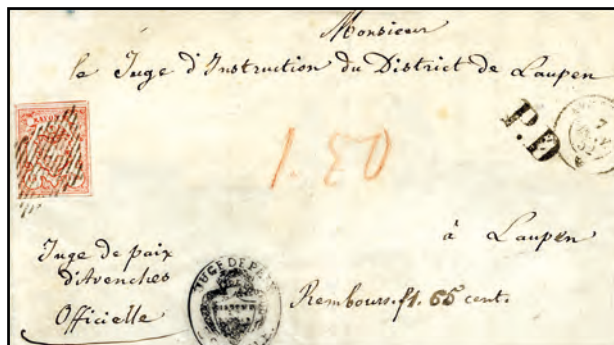 Monsieur
le Juge d'Instruction du District de Laupen
RAYON
P.D
7
1.50
à Laupen
Juge de paix
d'Avenches
Officielle
JUGE DE PAIX
Rembours. f 1. 65 cent.